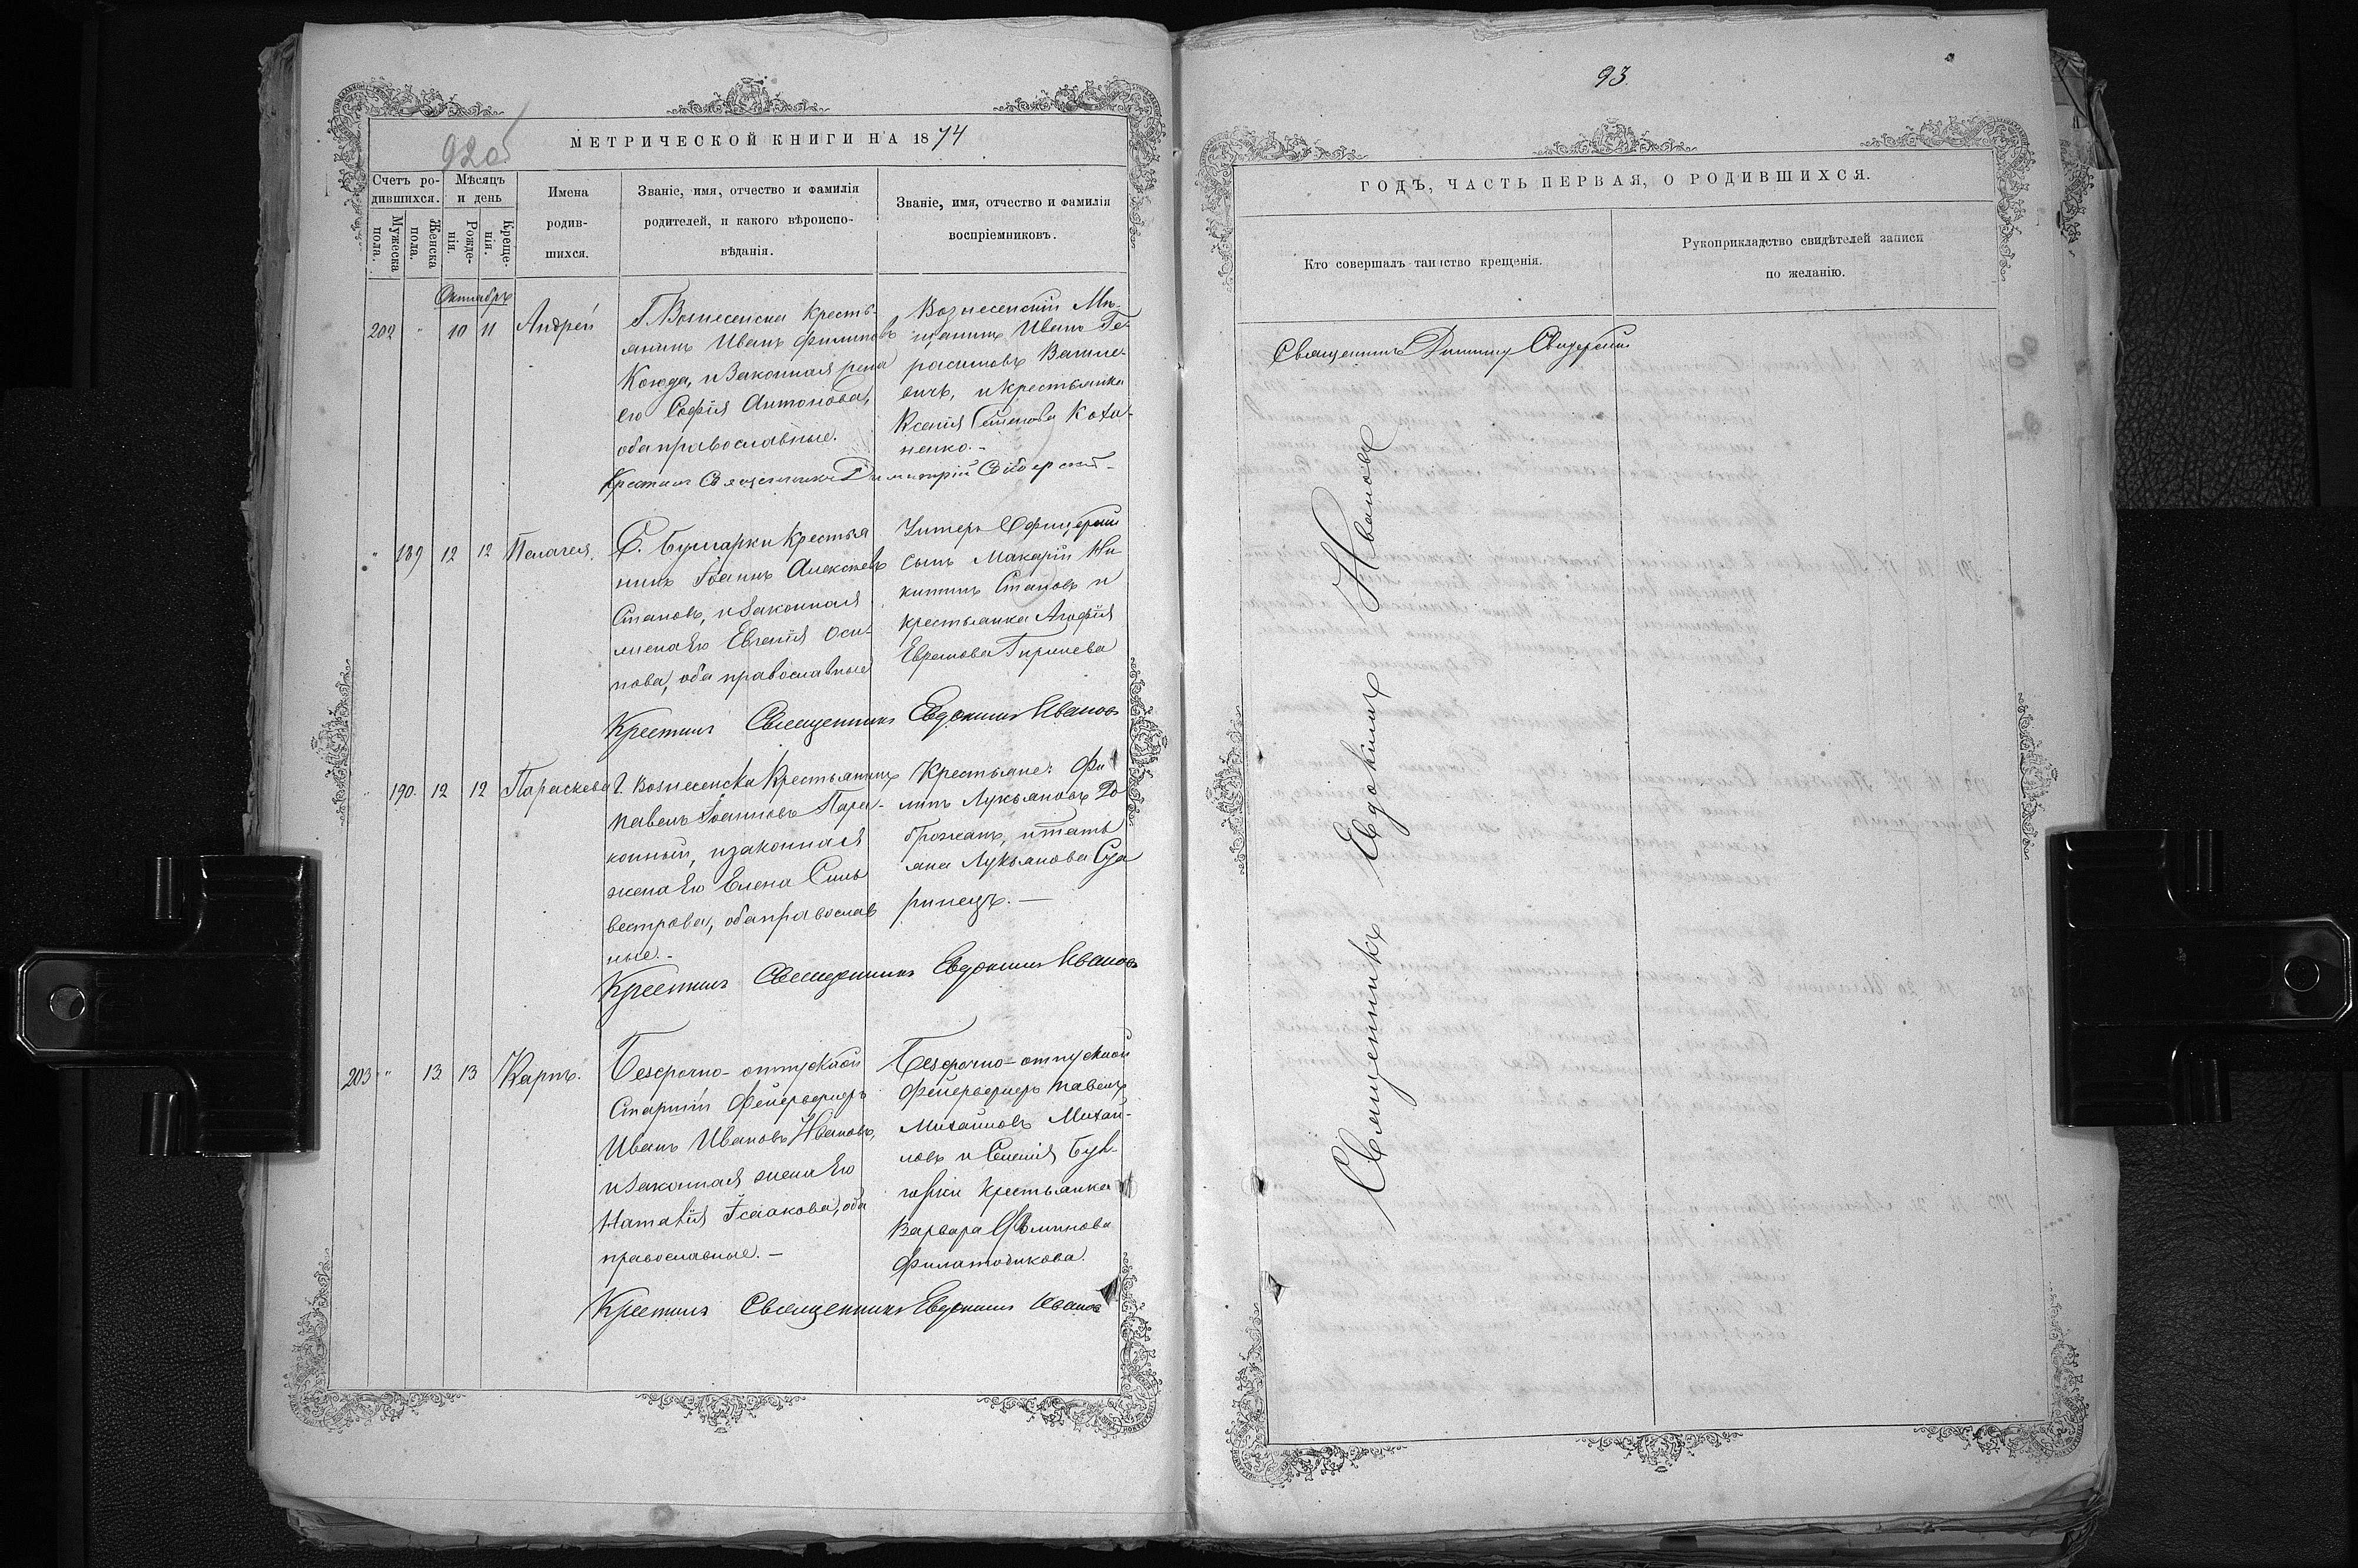 92об
МЕТРИЧЕСКОЙ КНИГИ НА 1874
Счетъ ро-
дившихся.
Мѣсяцъ
и день
Мужеска
пола.
Женска
пола.
Рожде-
нія.
Креще-
нія.
Имена
родив-
шихся.
Званіе, имя, отчество и фамилія
родителей, и какого вѣроиспо-
вѣданія.
Званіе, имя, отчество и фамилія
воспріемниковъ.
Октябрь
202 " 10 11 Андрей
Г. Вознесенска Крестья-
янинъ Иванъ Филиповъ
Коюда, и Законная жена
его Софія Антонова,
оба православные.
Вознесенскій Мѣ-
щанинъ Иванъ Ге-
расимовъ
вичъ, и крестьянка
Ксенія Семенова Коха-
ненко.-
Крестилъ Священникъ Димитрій Свидерскій-
" 189 12 12 Пелагея.
С. Булгарки Крестья
нинъ Іоаннъ Алексѣевъ
Становъ, и Законная
жена Его Евгенія Оси-
пова, оба православные
Унтеръ Офицерскій
сынъ Макарій Ни-
китинъ Становъ и
крестьянка Агафія
Ефремова
Крестилъ Священникъ Евдокимъ Ивановъ
" 190. 12 12 Параскева
Г. Вознесенска Крестьянинъ
Павелъ Іоанновъ Пара-
конный, и законная
жена Его Елена Силь
вестрова, оба православ
ные.-
Крестьяне: Фи
липъ Лукьяновъ До
брожанъ, и Тать
яна Лукьянова
Крестилъ Священникъ Евдокимъ Ивановъ
203 " 13. 13 Карпъ.
Безсрочно-отпускной
Старшій Фейерверкеръ
Иванъ Ивановъ Ивановъ,
и Законная жена Его
Наталія Ісаакова, оба
православные.-
Безсрочно-отпускной
Фейерверкеръ Павелъ
Михаиловъ Михаи-
ловъ и Селенія Бул-
гарки Крестьянка
Варвара
Филатовикова.
Крестилъ Священникъ Евдокимъ Ивановъ
93.
ГОДЪ, ЧАСТЬ ПЕРВАЯ, О РОДИВШИХСЯ.
Кто совершалъ таинство крещенія.
Рукоприкладство свидѣтелей записи
по желанію.
Священникъ Димитрій Свидерскій
Священникъ Евдокимъ Ивановъ